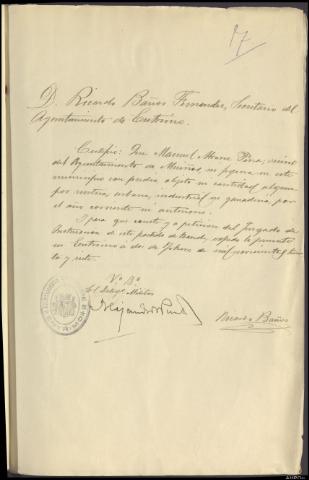 17
D. Ricardo Baños Fernandez, Secretario del
Ayuntamiento de Entrimo.
Certifico: Que Manuel Alvarez Pérez, vecino
del Ayuntamiento de Muiños, no figura en este
municipio con predio objeto ni cantidad alguna
por rústica, urbana, industrial ni ganaderia, por
el año corriente ni anteriores.
Y para que conste y a petición del Juzgado de
Instrucción de este partido de Bande, expido la presente
en Entrimo a dos de Febrero de mil novecientos trein-
ta y siete.
Vº Bº
El Delegº Militar
Alejandro
Ricardo Baños